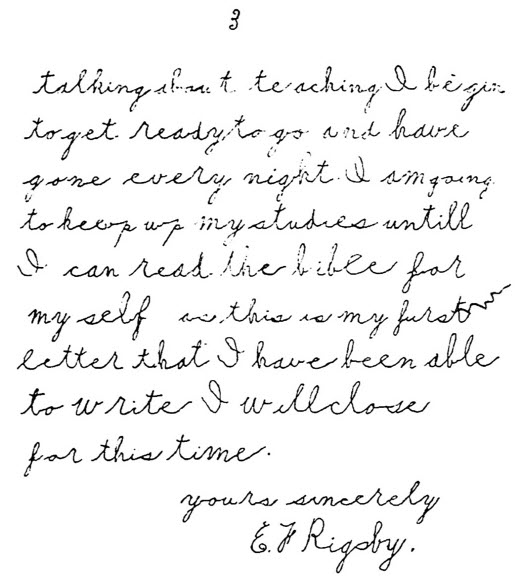 3
talking about teaching I begin
to get ready to go and have
gone every night. I am going
to keep up my studies untill
I can read the bible for
my self as this is my first
letter that I have been able
to write I will close
for this time.
yours sincerely
E. F Rigsby.